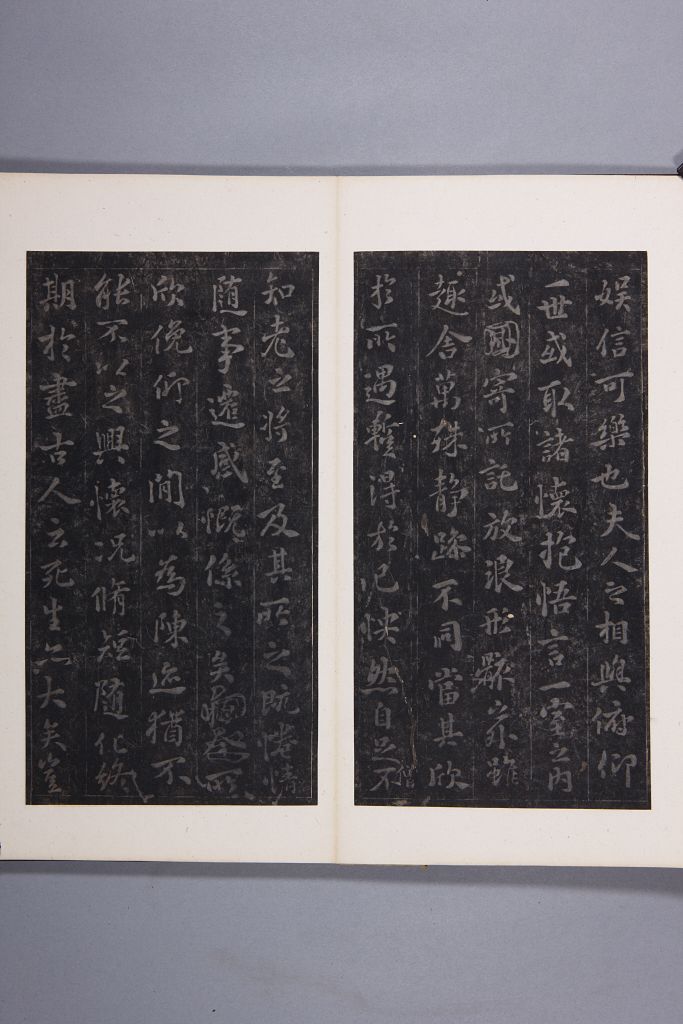 娛信可樂也夫人之相與俯仰
一世或取諸懷抱悟言一室之內
或因寄所託放浪形骸之外雖
趣舍萬殊靜躁不同當其欣
僧
於所遇蹔得於己怏然自足不
知老之將至及其所之既惓情
隨事遷感慨係之矣向之所
欣俛仰之閒以為陳迹猶不
能不以之興懷況脩短隨化終
期於盡古人云死生亦大矣豈